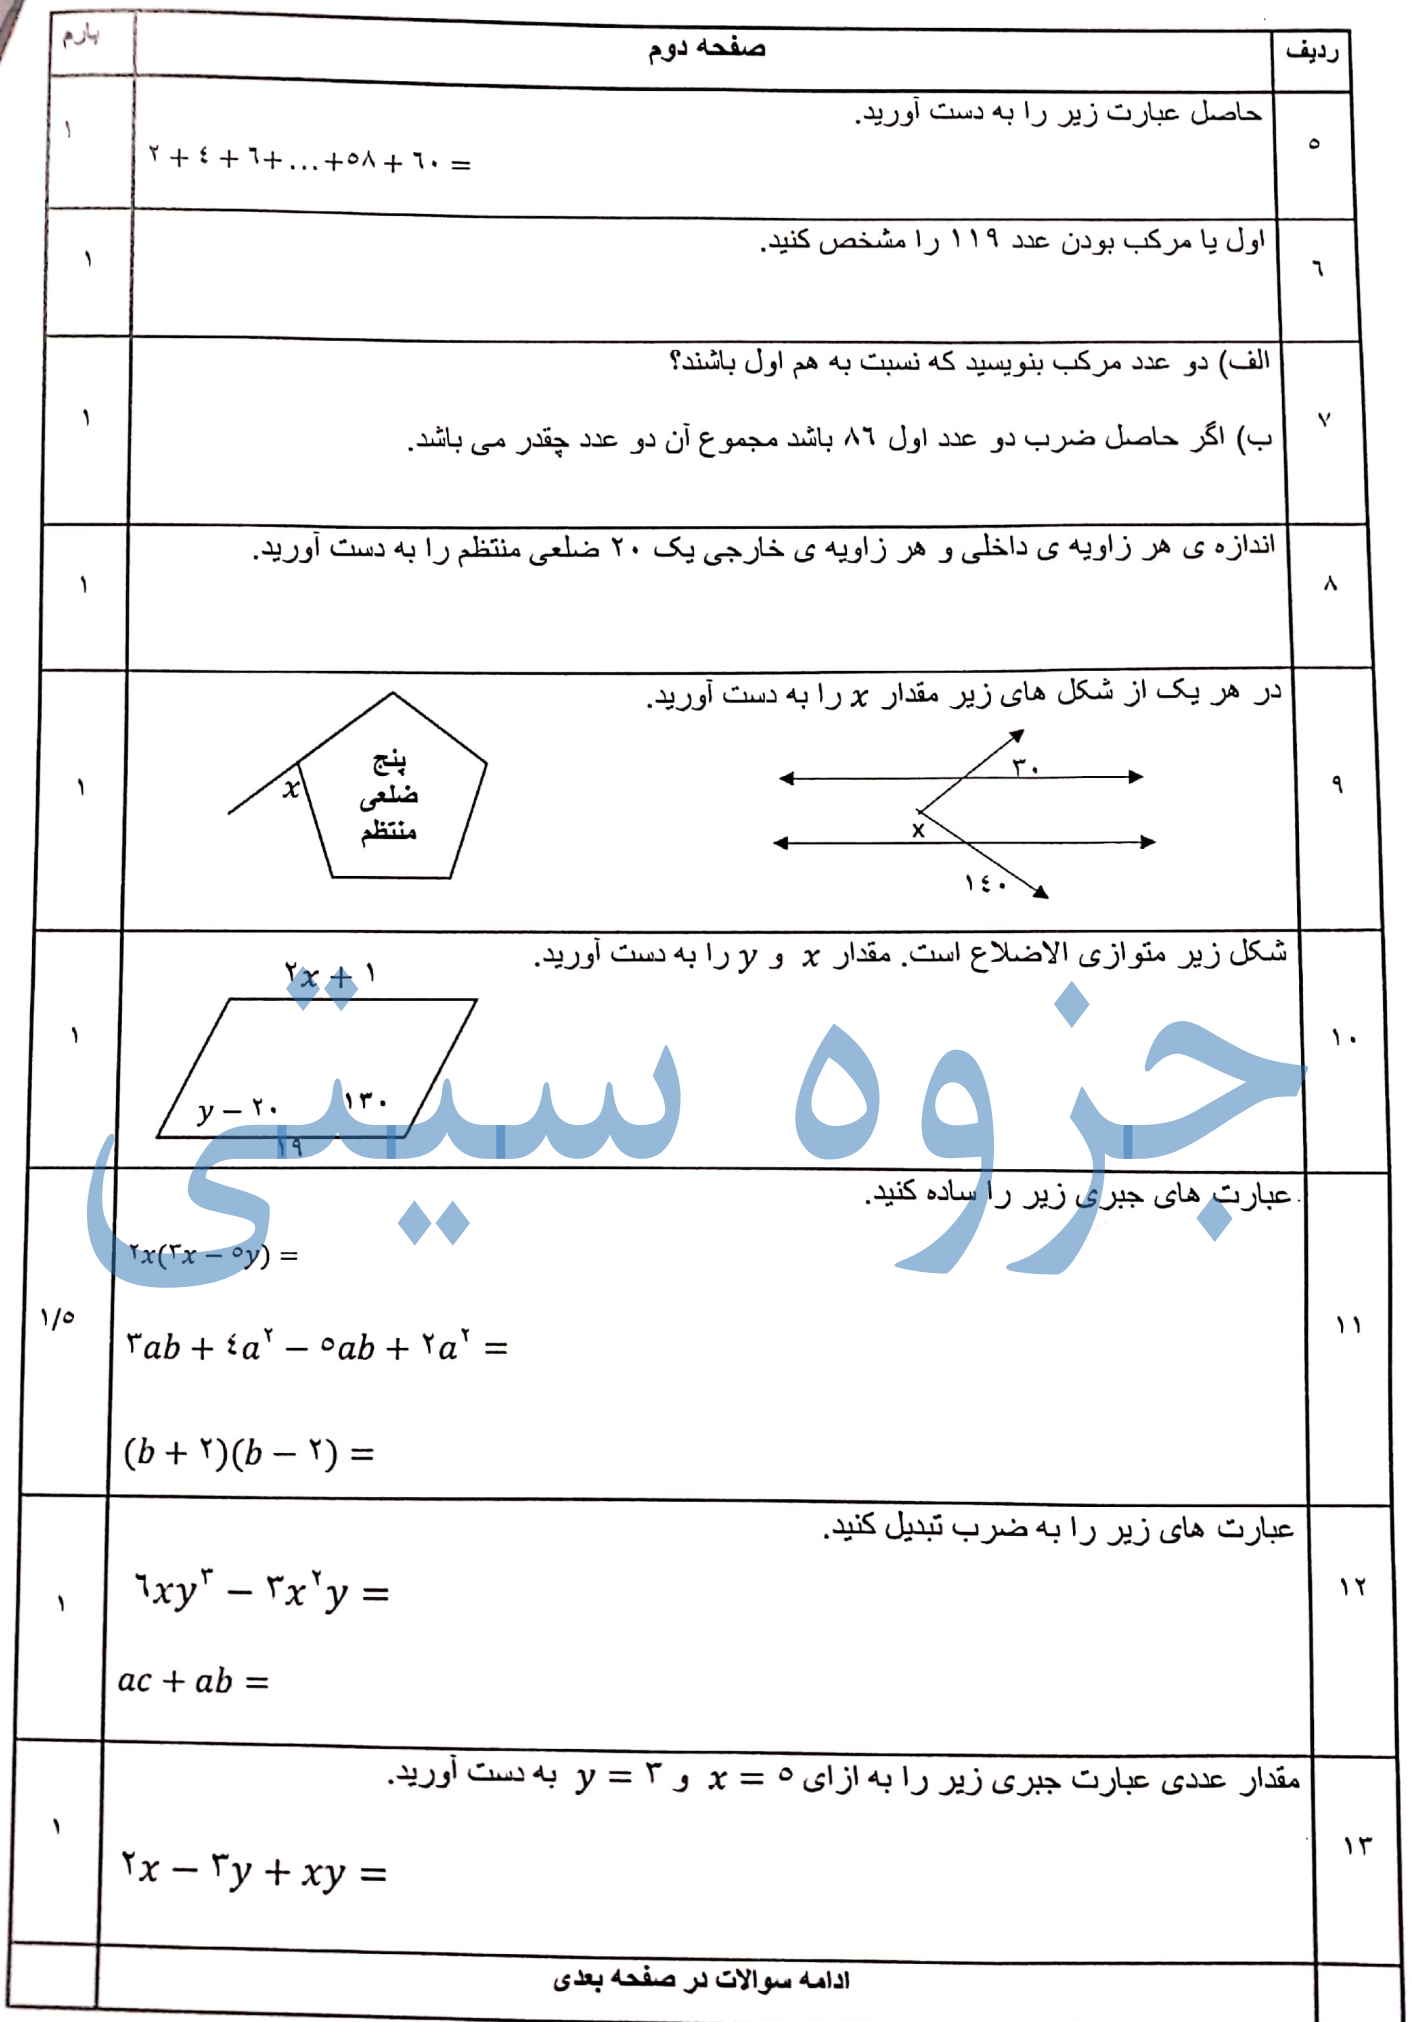 ردیف صفحه دوم بارم
٥ حاصل عبارت زیر را به دست آورید. ١
٢ + ٤ + ٦+...+٥٨ + ٦٠ =
٦ اول یا مرکب بودن عدد ١١٩ را مشخص کنید. ١
٧ الف) دو عدد مرکب بنویسید که نسبت به هم اول باشند؟ ١
ب) اگر حاصل ضرب دو عدد اول ٨٦ باشد مجموع آن دو عدد چقدر می باشد.
٨ اندازه ی هر زاویه ی داخلی و هر زاویه ی خارجی یک ٢٠ ضلعی منتظم را به دست آورید. ١
٩ در هر یک از شکل های زیر مقدار x را به دست آورید. ١
٣٠
x
١٤٠
پنج
ضلعی
منتظم
x
١٠ شکل زیر متوازی الاضلاع است. مقدار x و y را به دست آورید. ١
٢x + ١
y − ٢٠ ١٣٠
١٩
جزوه سیتی
١١ عبارت های جبری زیر را ساده کنید. ١/٥
٢x(٣x − ٥y) =
٣ab + ٤a² − ٥ab + ٢a² =
(b + ٢)(b − ٢) =
١٢ عبارت های زیر را به ضرب تبدیل کنید. ١
٦xy³ − ٣x²y =
ac + ab =
١٣ مقدار عددی عبارت جبری زیر را به ازای x = ٥ و y = ٣ به دست آورید. ١
٢x − ٣y + xy =
ادامه سوالات در صفحه بعدی